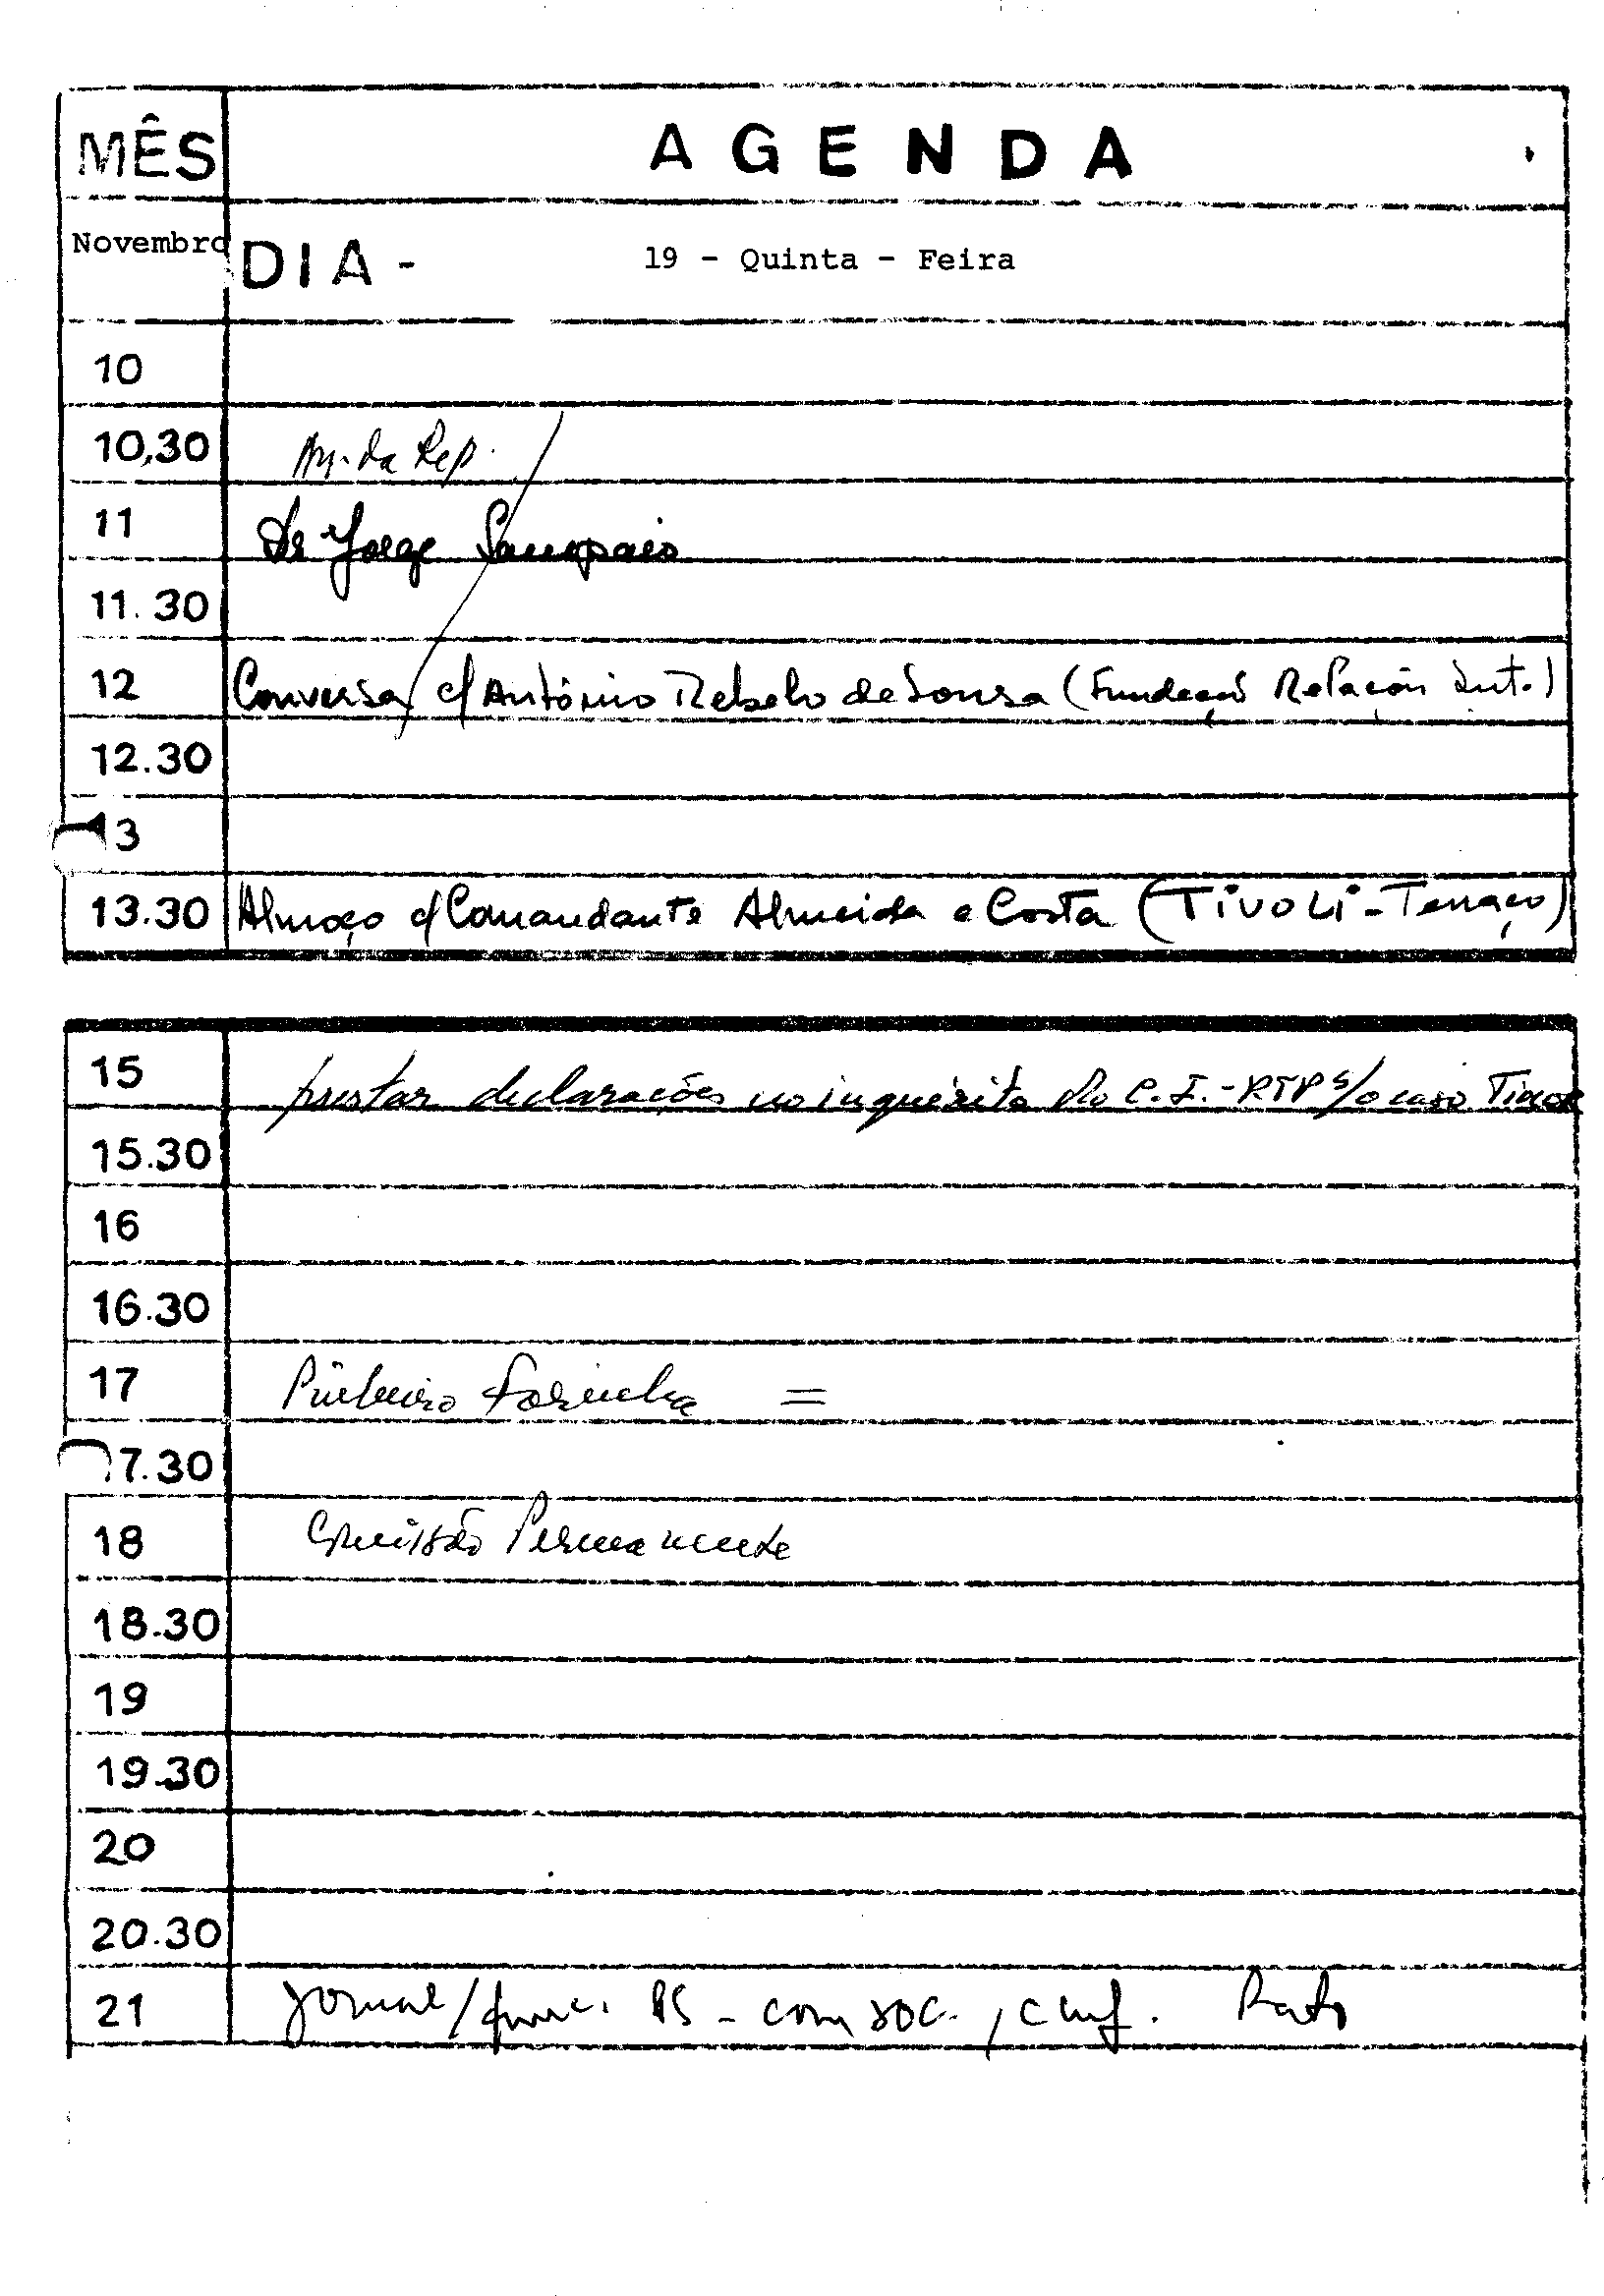 MÊS AGENDA
Novembro DIA - 19 - Quinta - Feira
10
10,30 da Rep.
11 Dr Jorge Sampaio
11.30
12 Conversa c/ António Rebelo de Sousa (Fundação Relações Int.)
12.30
13
13.30 Almoço c/ Comandante Almeida e Costa (TIVOLI - Terraço)
15 prestar declarações no inquérito do C.I.-RTP s/ o caso Timor
15.30
16
16.30
17 Pinheiro Farinha =
17.30
18 Comissão Permanente
18.30
19
19.30
20
20.30
21 Jornal / func. PS - com soc., Rato